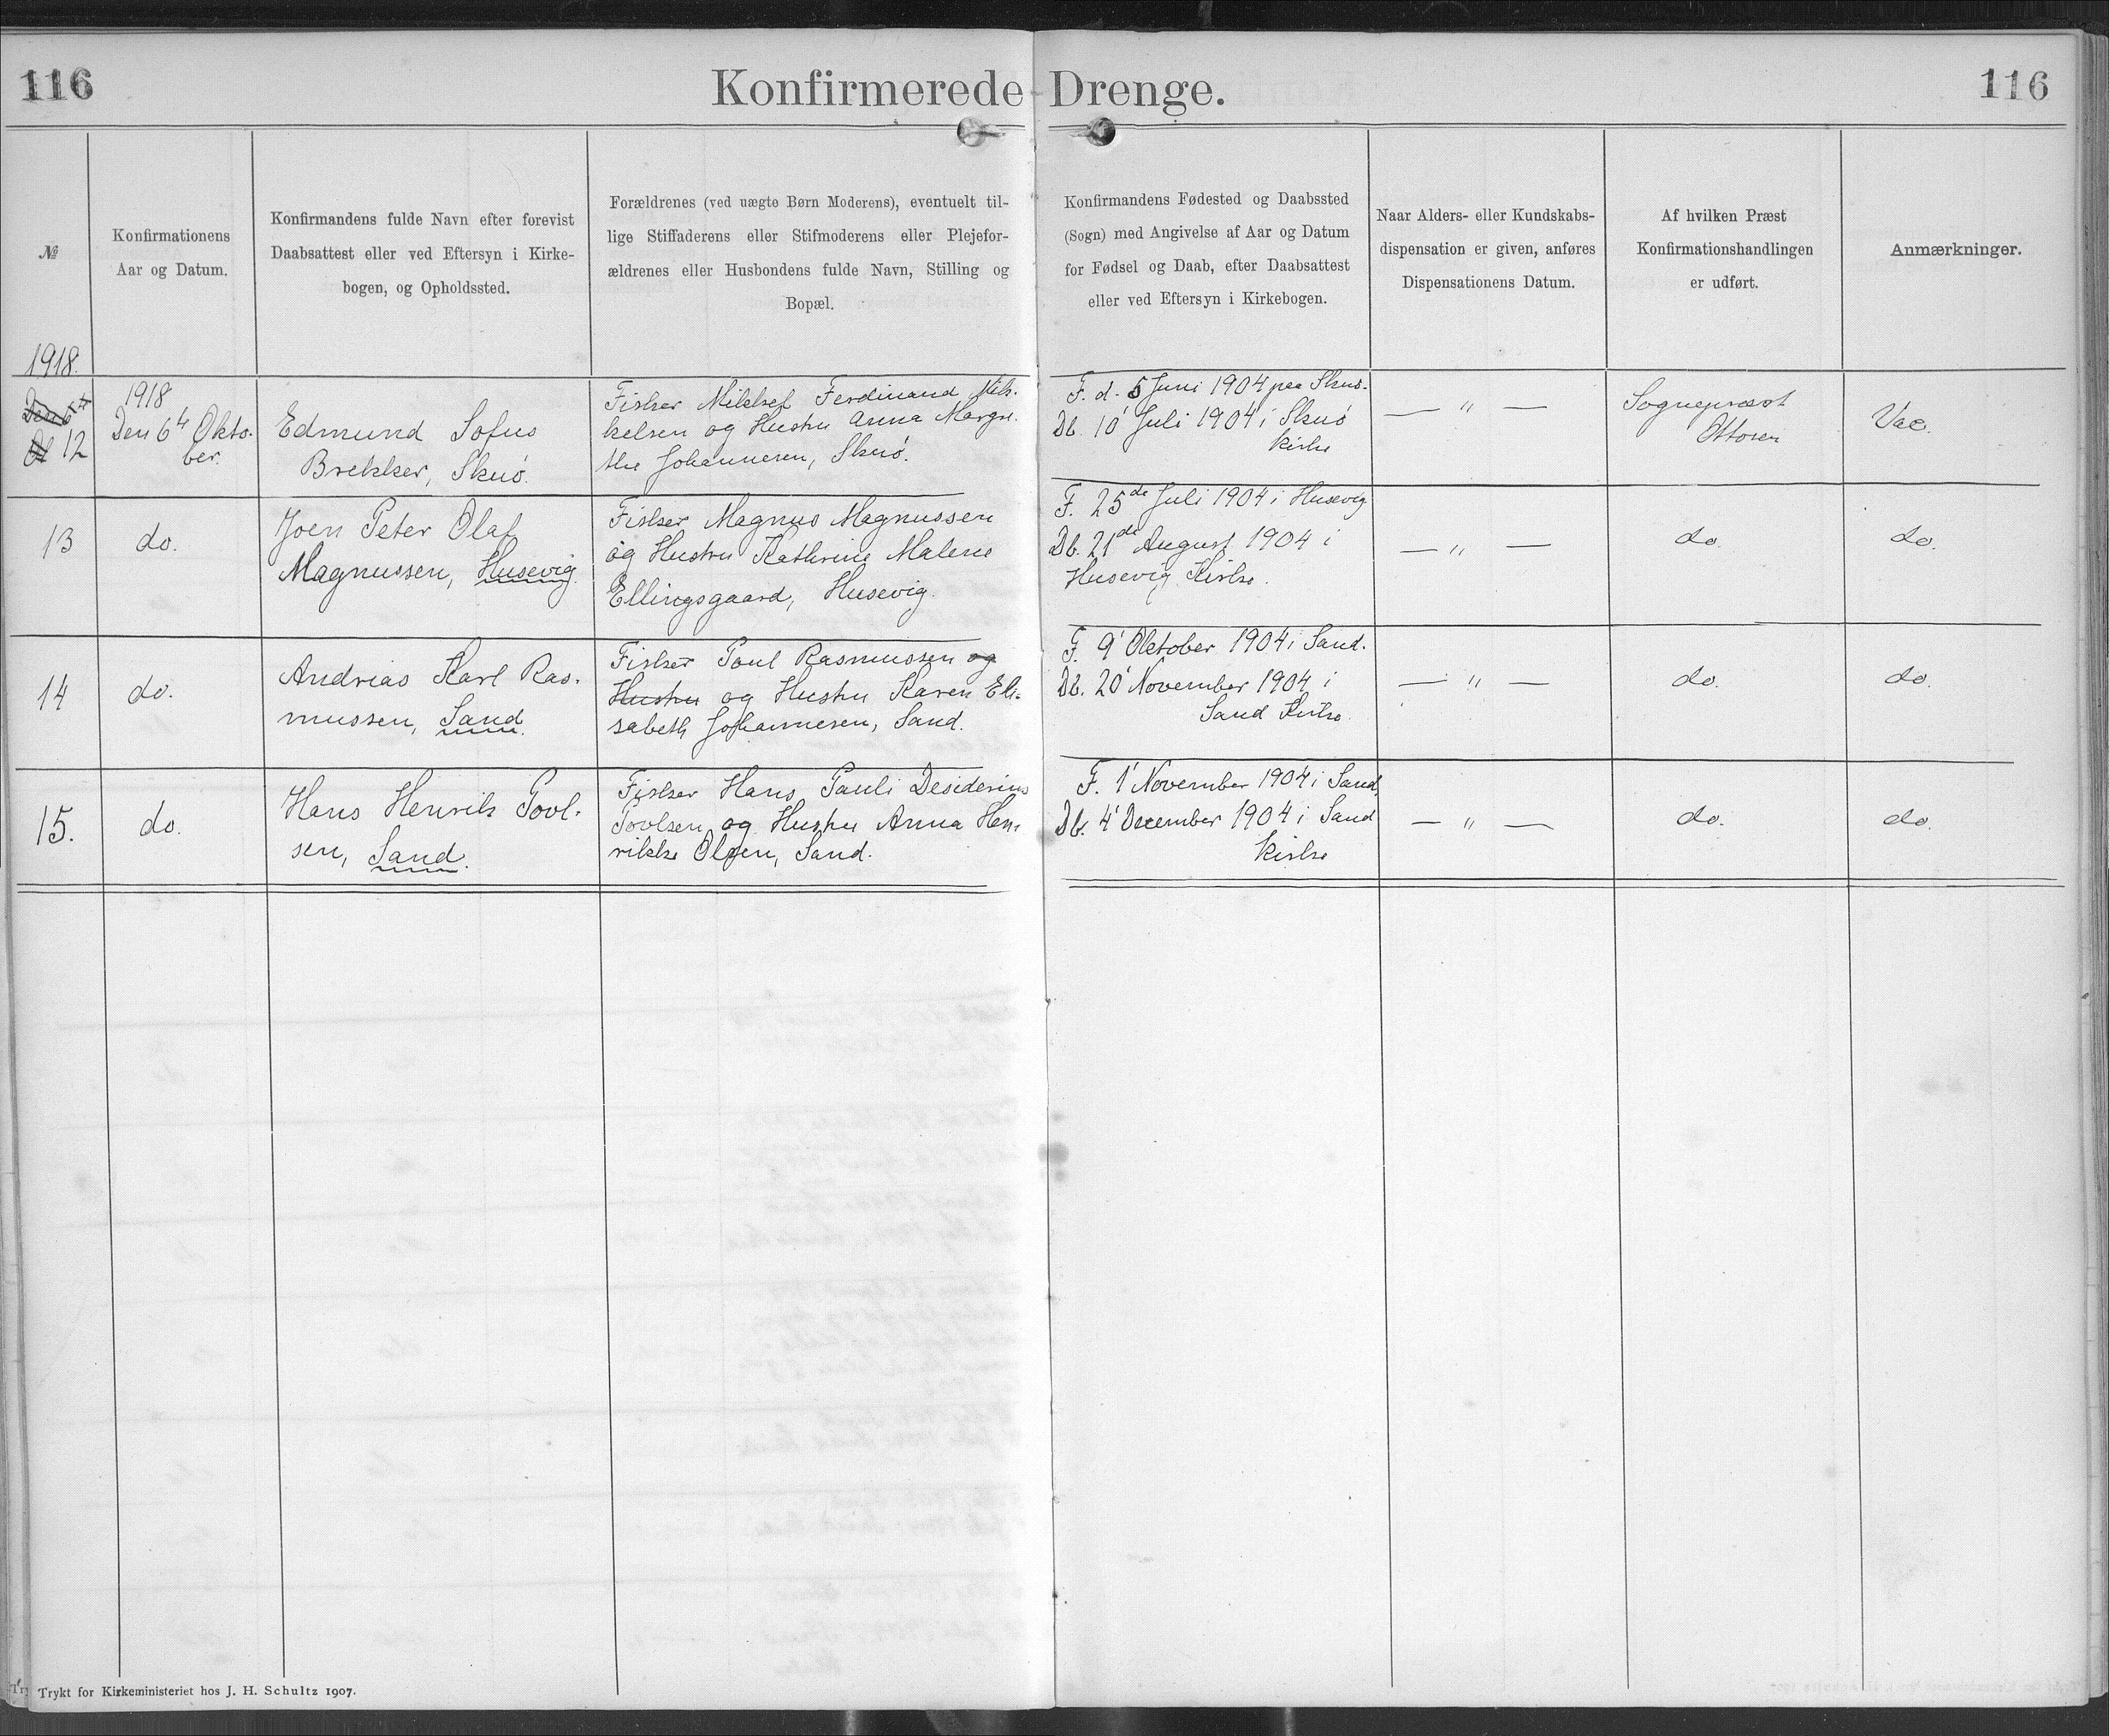 116
Konfirmerede Drenge.
116
№
Konfirmationens
Aar og Datum.
Konfirmandens fulde Navn efter forevist
Daabsattest eller ved Eftersyn i Kirke-
bogen, og Opholdssted.
Forældrenes (ved uægte Børn Moderens), eventuelt til-
lige Stiffaderens eller Stifmoderens eller Plejefor-
ældrenes eller Husbondens fulde Navn, Stilling og
Bopæl.
Konfirmandens Fødested og Daabssted
(Sogn) med Angivelse af Aar og Datum
for Fødsel og Daab, efter Daabsattest
eller ved Eftersyn i Kirkebogen.
Naar Alders- eller Kundskabs-
dispensation er given, anføres
Dispensationens Datum.
Af hvilken Præst
Konfirmationshandlingen
er udført.
Anmærkninger.
1918.
12
1918
Den 6te Okto-
ber.
Edmund Sofus
Brekker, Skuö.
Fisker Mikkel Ferdinand Mik-
kelsen og Hustru Anna Margre-
the Johannesen, Skuö.
F. d. 5 Juni 1904 paa Skuö.
Db. 10' Juli 1904 i Skuö
Kirke
— " —
Sognepræst
Ottosen
Vac.
13
do.
Joen Peter Olaf
Magnussen, Husevig.
Fisker Magnus Magnussen
og Hustru Kathrine Malene
Ellingsgaard, Husevig.
F. 25de Juli 1904 i Husevig
Db. 21de August 1904 i
Husevig Kirke.
— " —
do.
do.
14
do.
Andrias Karl Ras-
mussen, Sand.
Fisker Poul Rasmussen og
Hustru og Hustru Karen Eli-
sabeth Johannesen, Sand.
F. 9' Oktober 1904 i Sand.
Db. 20' November 1904 i
Sand Kirke.
— " —
do.
do.
15.
do.
Hans Henrik Povl-
sen, Sand.
Fisker Hans Pauli Desiderius
Povlsen og Hustru Anna Hen-
rikke Olsen, Sand.
F. 1' November 1904 i Sand,
Db. 4' December 1904 i Sand
Kirke
— " —
do.
do.
Trykt for Kirkeministeriet hos J. H. Schultz 1907.